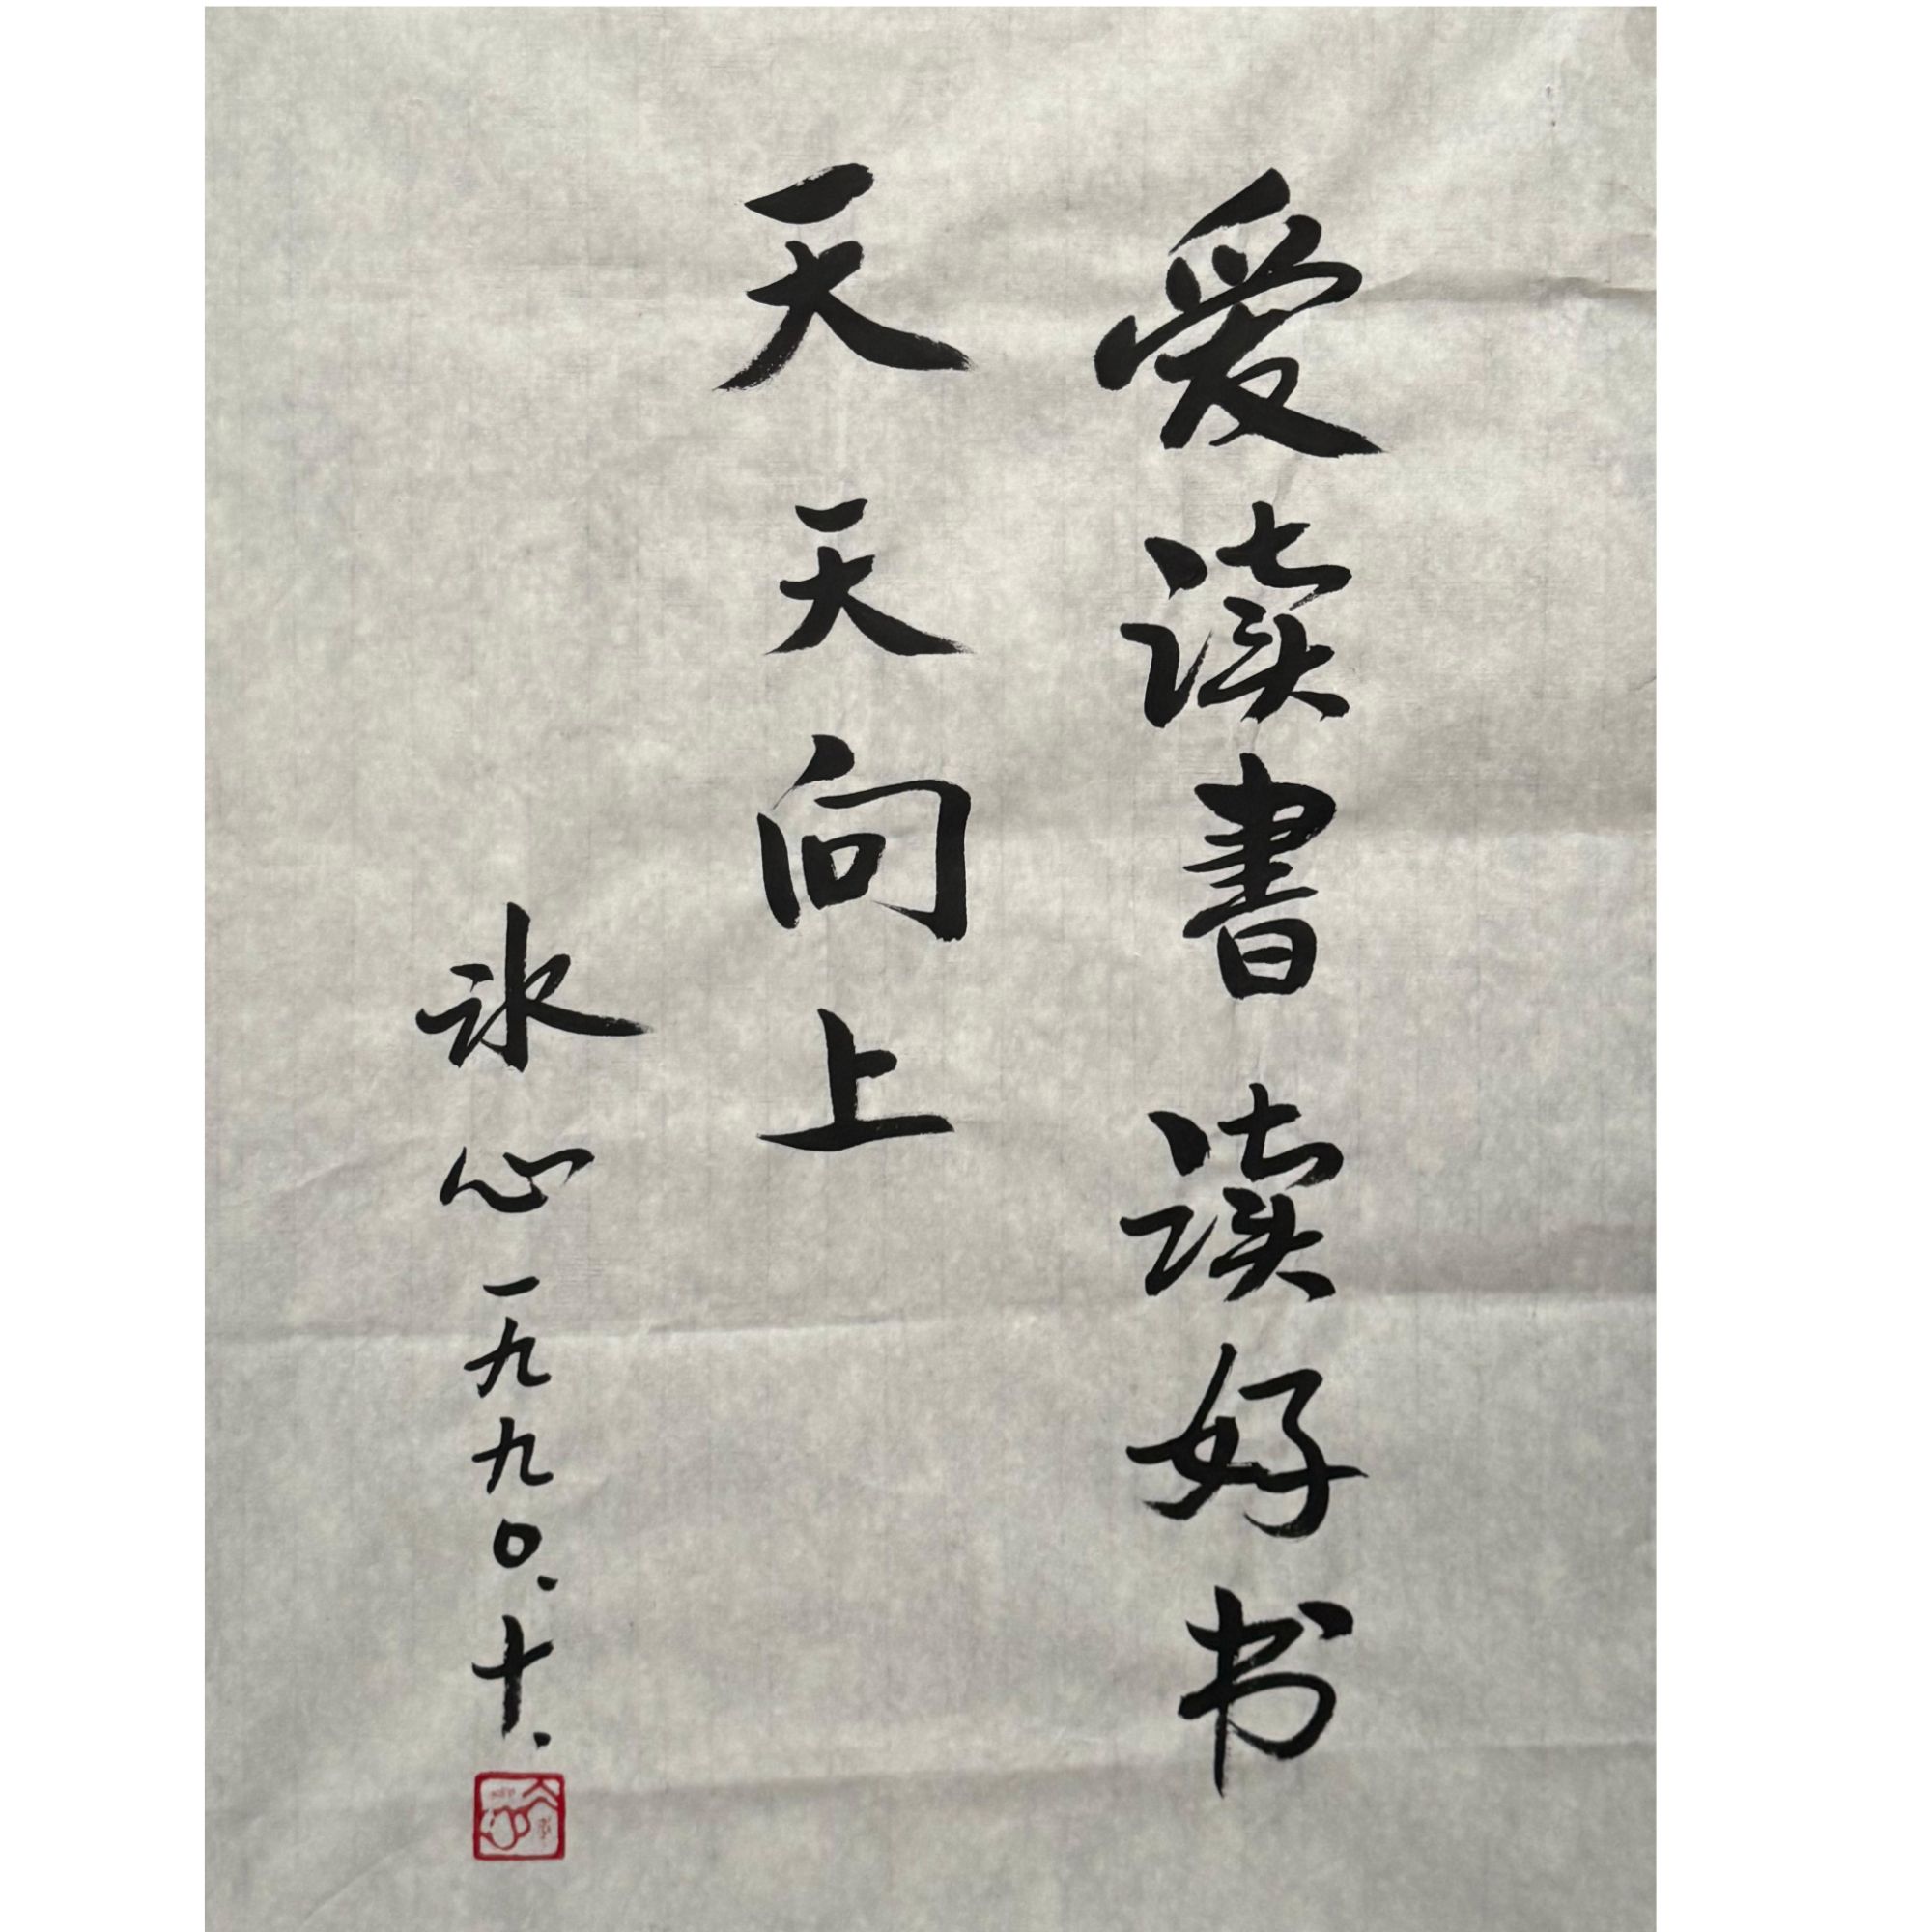 爱读書读好书
天天向上
冰心一九九〇.十.